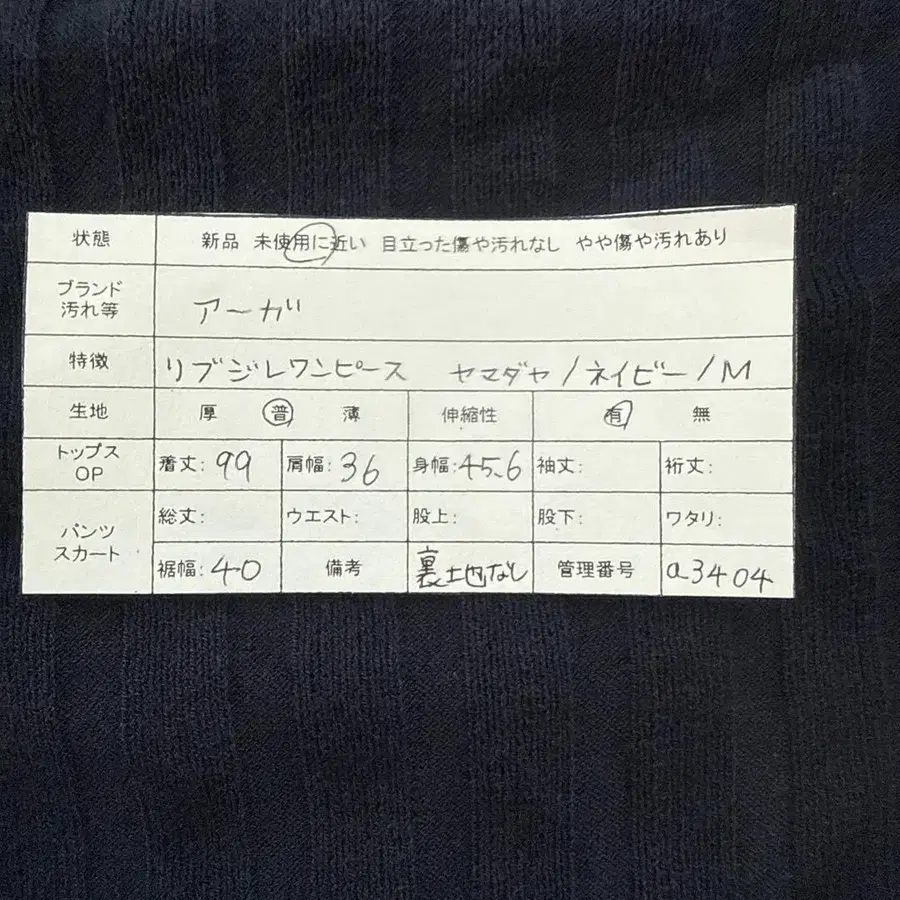 状態 新品 未使用に近い 目立った傷や汚れなし やや傷や汚れあり
ブランド
汚れ等 アーガ
特徴 リブジレワンピース ヤマダヤ/ネイビー/M
生地 厚 普 薄 伸縮性 有 無
トップス
OP 着丈:99 肩幅:36 身幅:45.6 袖丈: 裄丈:
パンツ
スカート 総丈: ウエスト: 股上: 股下: ワタリ:
裾幅:40 備考 裏地なし 管理番号 a3404